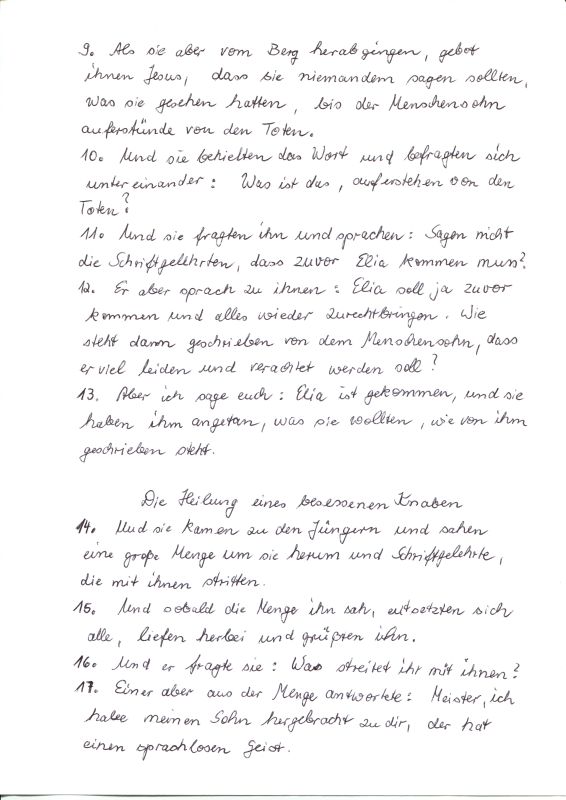 9. Als sie aber vom Berg herabgingen, gebot
ihnen Jesus, dass sie niemandem sagen sollten,
was sie gesehen hatten, bis der Menschensohn
auferstünde von den Toten.
10. Und sie behielten das Wort und befragten sich
untereinander: Was ist das, auferstehen von den
Toten?
11. Und sie fragten ihn und sprachen: Sagen nicht
die Schriftgelehrten, dass zuvor Elia kommen muss?
12. Er aber sprach zu ihnen: Elia soll ja zuvor
kommen und alles wieder zurechtbringen. Wie
steht dann geschrieben von dem Menschensohn, dass
er viel leiden und verachtet werden soll?
13. Aber ich sage euch: Elia ist gekommen, und sie
haben ihm angetan, was sie wollten, wie von ihm
geschrieben steht.
Die Heilung eines besessenen Knaben
14. Und sie kamen zu den Jüngern und sahen
eine große Menge um sie herum und Schriftgelehrte,
die mit ihnen stritten.
15. Und sobald die Menge ihn sah, entsetzten sich
alle, liefen herbei und grüßten ihn.
16. Und er fragte sie: Was streitet ihr mit ihnen?
17. Einer aber aus der Menge antwortete: Meister, ich
habe meinen Sohn hergebracht zu dir, der hat
einen sprachlosen Geist.